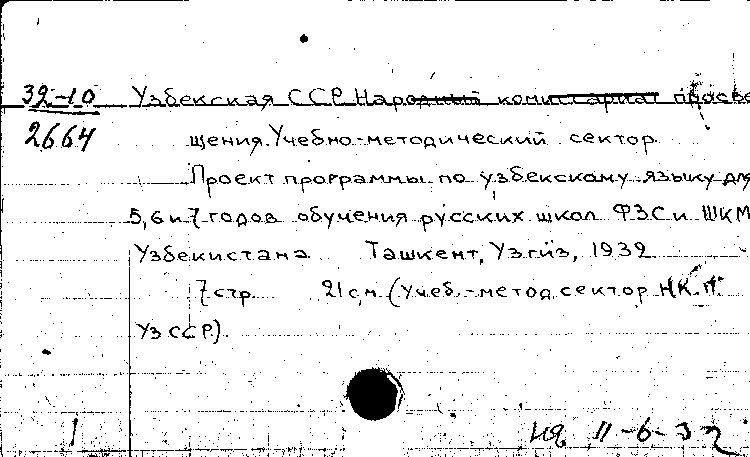 32-10 Узбекская ССР. Народный комиссариат просве
2664 щения. Учебно-методический сектор.
Проект программы по узбекскому языку для
5, 6 и 7 годов обучения русских школ ФЗС и ШКМ
Узбекистана Ташкент, Узгиз, 1932
7 стр. 21 см. (Учеб.-метод. сектор НК.П.
Уз ССР).
1 11-6-32